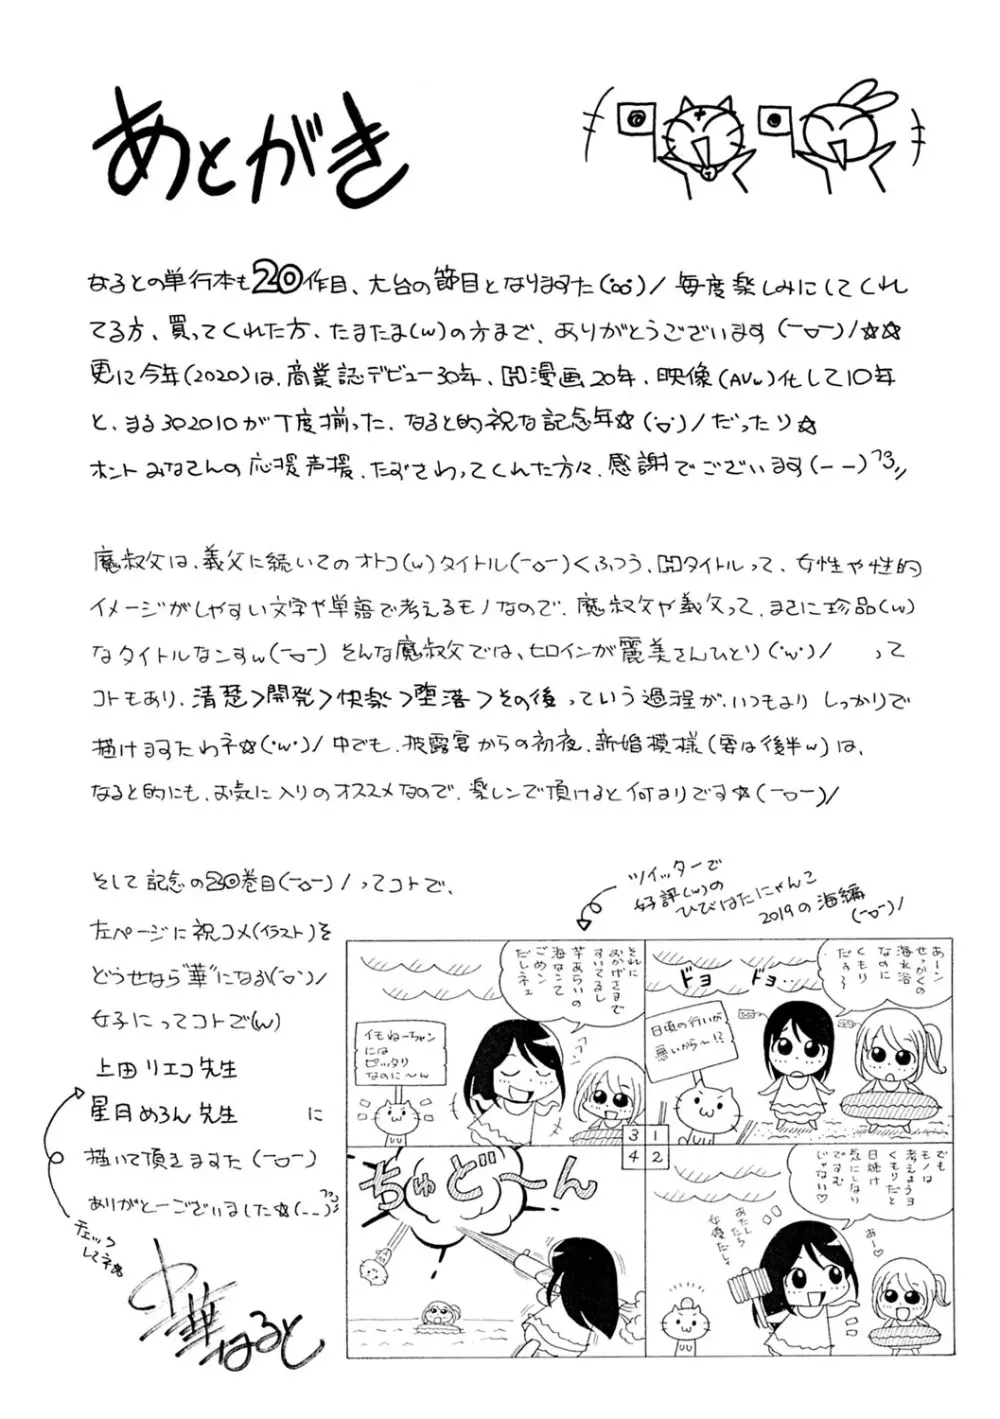 あとがき
なるとの単行本も20作目、大台の節目となりますた(°ω°)ノ 毎度楽しみにしてくれ
てる方、買ってくれた方、たまたま(w)の方まで、ありがとうございます(￣▽￣)ノ☆☆
更に今年(2020)は、商業誌デビュー30年、H漫画20年、映像(AVw)化して10年
と、まる302010が丁度揃った、なると的祝な記念年☆(°▽°)ノだったり☆
ホントみなさんの応援声援、たずさわってくれた方々、感謝でございます(－－)ﾌｶ〃
魔叔父は、義父に続いてのオトコ(w)タイトル(￣▽￣)くふつう、Hタイトルって、女性や性的
イメージがしやすい文字や単語で考えるモノなので、魔叔父や義父って、まさに珍品(w)
なタイトルなンすw(￣▽￣) そんな魔叔父では、ヒロインが麗美さんひとり(°w°)ノ って
コトもあり、清楚>開発>快楽>堕落>その後 っていう過程が、いつもより しっかりで
描けますたわネ☆(°w°)ノ 中でも、披露宴からの初夜、新婚模様(要は後半w)は、
なると的にも、お気に入りのオススメなので、楽しンで頂けると何よりです☆(￣▽￣)ノ
そして記念の20巻目(￣▽￣)ノってコトで、
左ページに祝コメ(イラスト)を
どうせなら"華"になる(°▽°)ノ
女子にってコトで(w)
上田リエコ先生
星月めろん先生 に
描いて頂きますた(￣▽￣)
ありがとーございました☆(－－)ﾌｶ
チェック
してネ☆
中華なると
ツイッターで
好評(w)の
ひびはたにゃんこ
2019の海編
(￣▽￣)ノ
あーン
せっかくの
海水浴
なのに
くもり
だぁ～
ドヨ ドヨ…
日頃の行いが
悪いから～!?
1
でも
モノは
考えようヨ
くもりだと
日焼け
気にしなり
ですむ
じゃない♡
あー♡
あたしたち
女優だしょ
2
それに
おかげさまで
すいてるし
芋あらいの
海なって
ごめン
だしネェ
イモねーちゃン
には
ピッタリ
なのに～ん
3
ちゅど～ん
4